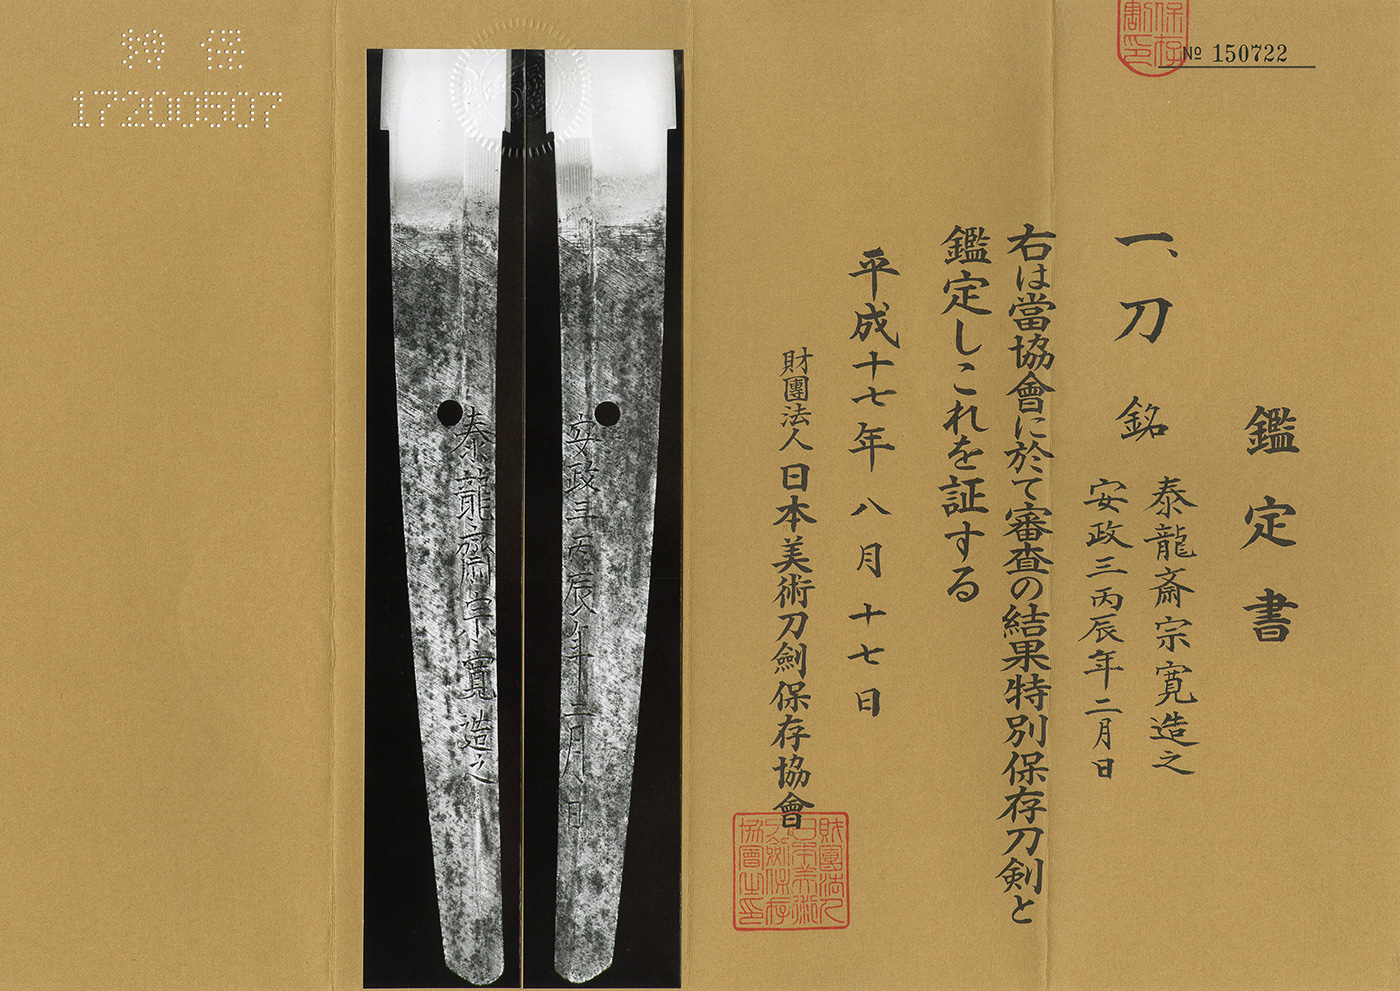 保
存
割
印
№ 150722
鑑定書
一、刀 銘
泰龍斎宗寛造之
安政三丙辰年二月日
右は當協會に於て審査の結果特別保存刀剣と
鑑定しこれを証する
平成十七年八月十七日
財團法人日本美術刀劍保存協會
財團法人
日本美術
刀劍保存
協會之印
安政三丙辰年二月日
泰龍齋宗寛造之
特保
17200507